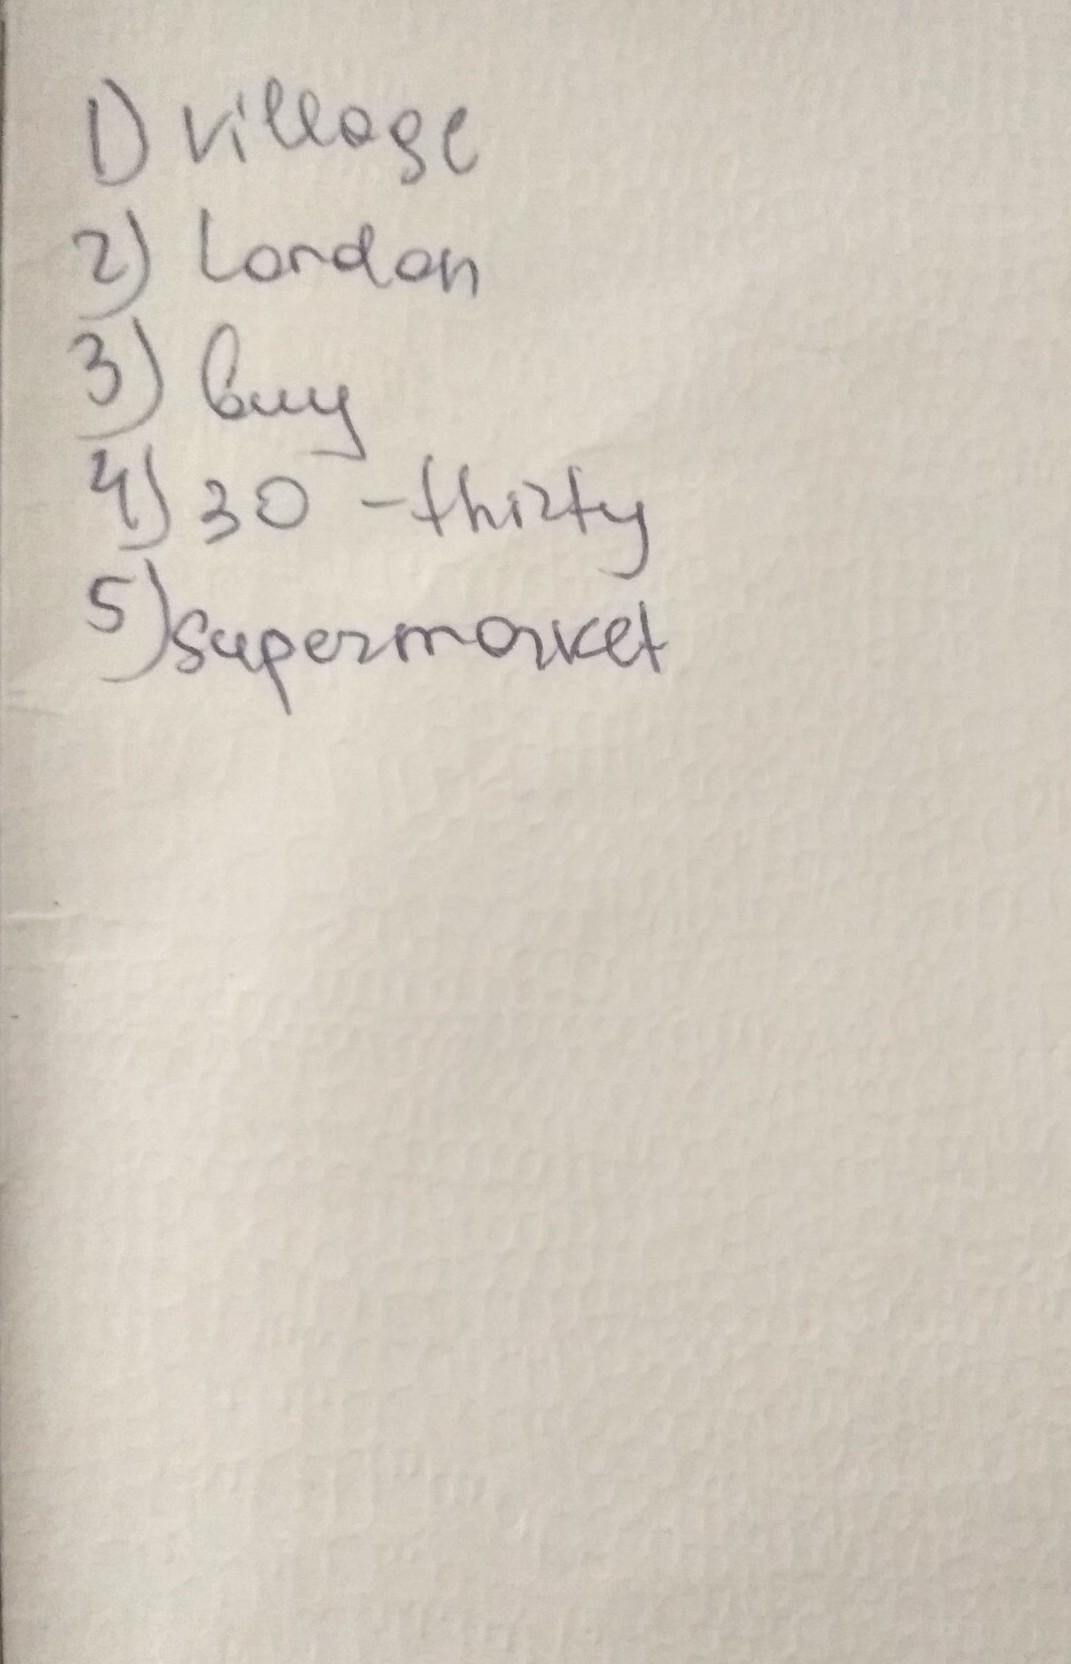 1) village
2) London
3) buy
4) 30 - thirty
5) supermarket